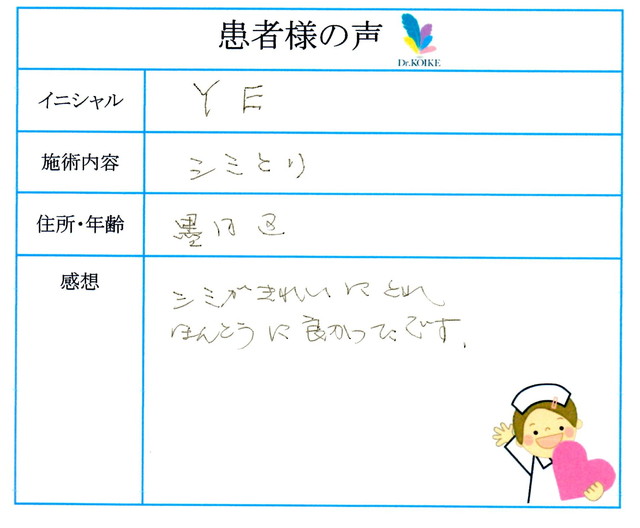 患者様の声
Dr.KOIKE
イニシャル
Y E
施術内容
シミとり
住所・年齢
墨田区
感想
シミがきれいにとれ
ほんとうに良かったです。